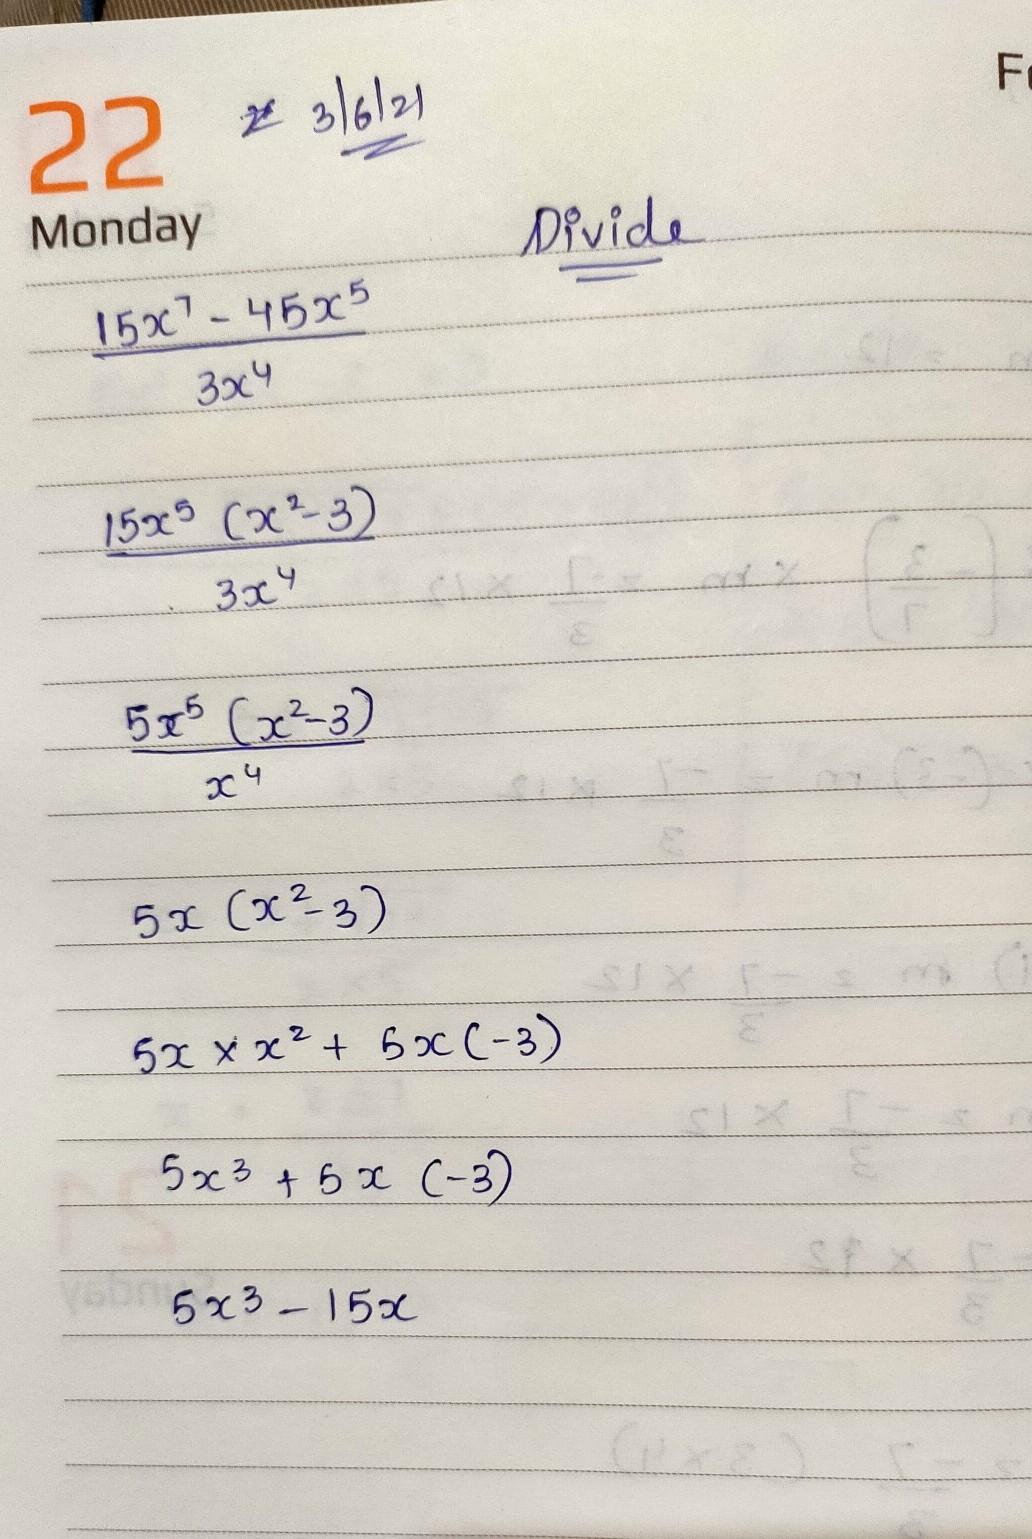 Fe
22 3/6/21
Monday
Divide
15x⁷ - 45x⁵
3x⁴
15x⁵ (x²-3)
3x⁴
5x⁵ (x²-3)
x⁴
5x (x²-3)
5x × x² + 5x(-3)
5x³ + 5x (-3)
5x³ - 15x